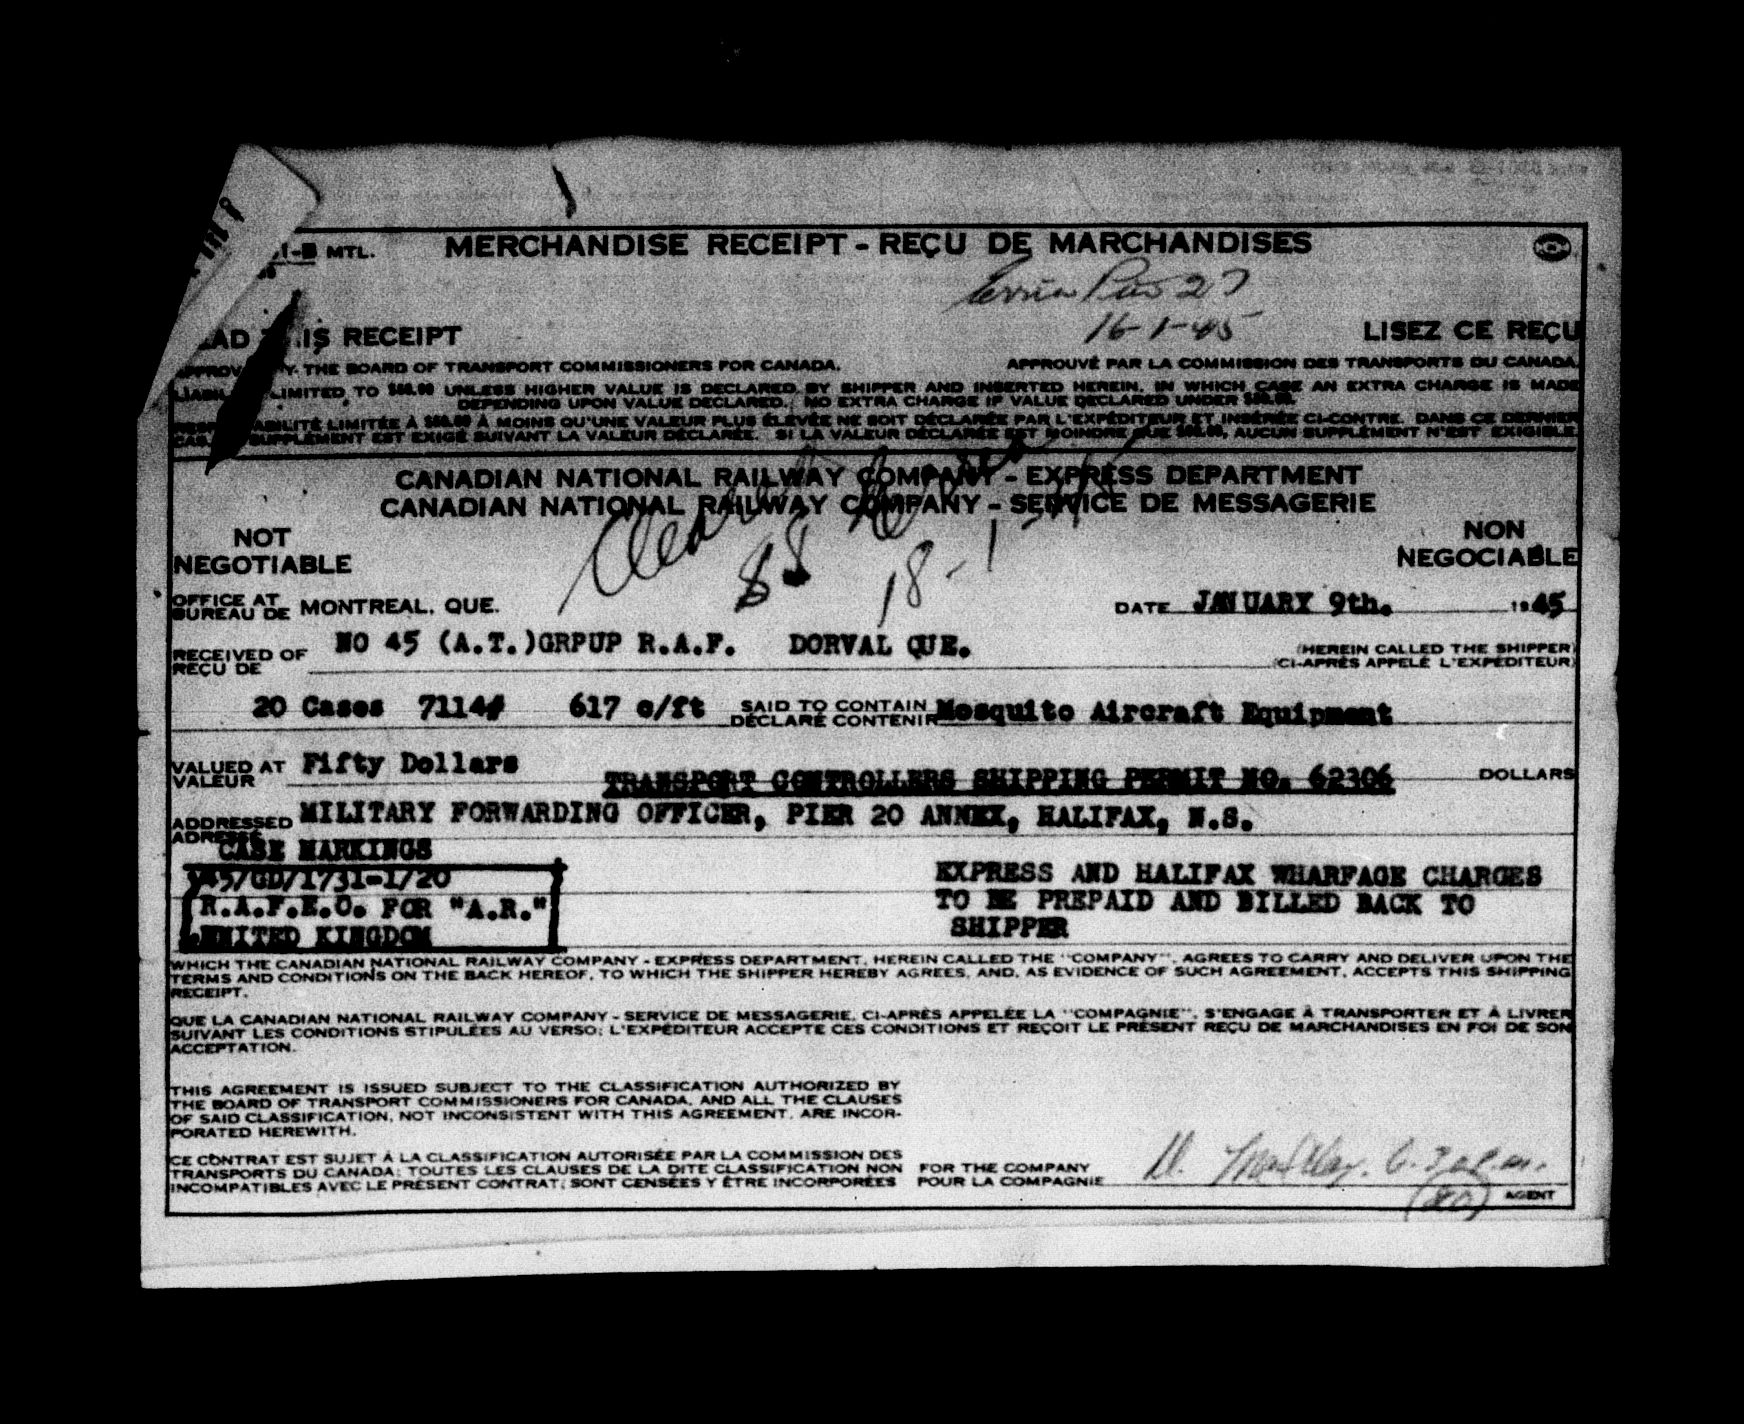 MTL. MERCHANDISE RECEIPT - REÇU DE MARCHANDISES
27
16-1-45
THIS RECEIPT LISEZ CE REÇU
THE BOARD OF TRANSPORT COMMISSIONERS FOR CANADA. APPROUVÉ PAR LA COMMISSION DES TRANSPORTS DU CANADA.
LIMITED TO $50.00 UNLESS HIGHER VALUE IS DECLARED BY SHIPPER AND INSERTED HEREIN, IN WHICH CASE AN EXTRA CHARGE IS MADE
DEPENDING UPON VALUE DECLARED. NO EXTRA CHARGE IF VALUE DECLARED UNDER $50.00.
LIMITÉE À $50.00 À MOINS QU'UNE VALEUR PLUS ÉLEVÉE NE SOIT DÉCLARÉE PAR L'EXPÉDITEUR ET INSÉRÉE CI-CONTRE, DANS CE DERNIER
SUPPLÉMENT EST EXIGÉ SUIVANT LA VALEUR DÉCLARÉE. SI LA VALEUR DÉCLARÉE EST MOINDRE QUE $50.00, AUCUN SUPPLÉMENT N'EST EXIGIBLE.
CANADIAN NATIONAL RAILWAY COMPANY - EXPRESS DEPARTMENT
CANADIAN NATIONAL RAILWAY COMPANY - SERVICE DE MESSAGERIE
NOT NEGOTIABLE
NON NEGOCIABLE
18-1-
OFFICE AT
BUREAU DE MONTREAL, QUE. DATE JANUARY 9th. 1945
RECEIVED OF NO 45 (A.T.)GRPUP R.A.F. DORVAL QUE. (HEREIN CALLED THE SHIPPER)
REÇU DE (CI-APRÈS APPELÉ L'EXPÉDITEUR)
20 Cases 7114# 617 c/ft SAID TO CONTAIN Mosquito Aircraft Equipment
DÉCLARÉ CONTENIR
VALUED AT Fifty Dollars
VALEUR TRANSPORT CONTROLLERS SHIPPING PERMIT NO. 62306 DOLLARS
ADDRESSED MILITARY FORWARDING OFFICER, PIER 20 ANNEX, HALIFAX, N.S.
ADRESSÉ
CASE MARKINGS
45/GD/1731-1/20 EXPRESS AND HALIFAX WHARFAGE CHARGES
R.A.F.E.O. FOR "A.R." TO BE PREPAID AND BILLED BACK TO
UNITED KINGDOM SHIPPER
WHICH THE CANADIAN NATIONAL RAILWAY COMPANY - EXPRESS DEPARTMENT, HEREIN CALLED THE "COMPANY", AGREES TO CARRY AND DELIVER UPON THE
TERMS AND CONDITIONS ON THE BACK HEREOF, TO WHICH THE SHIPPER HEREBY AGREES, AND, AS EVIDENCE OF SUCH AGREEMENT, ACCEPTS THIS SHIPPING
RECEIPT.
QUE LA CANADIAN NATIONAL RAILWAY COMPANY - SERVICE DE MESSAGERIE, CI-APRÈS APPELÉE LA "COMPAGNIE", S'ENGAGE À TRANSPORTER ET À LIVRER
SUIVANT LES CONDITIONS STIPULÉES AU VERSO; L'EXPÉDITEUR ACCEPTE CES CONDITIONS ET REÇOIT LE PRÉSENT REÇU DE MARCHANDISES EN FOI DE SON
ACCEPTATION.
THIS AGREEMENT IS ISSUED SUBJECT TO THE CLASSIFICATION AUTHORIZED BY
THE BOARD OF TRANSPORT COMMISSIONERS FOR CANADA, AND ALL THE CLAUSES
OF SAID CLASSIFICATION, NOT INCONSISTENT WITH THIS AGREEMENT, ARE INCOR-
PORATED HEREWITH.
CE CONTRAT EST SUJET À LA CLASSIFICATION AUTORISÉE PAR LA COMMISSION DES
TRANSPORTS DU CANADA; TOUTES LES CLAUSES DE LA DITE CLASSIFICATION NON
INCOMPATIBLES AVEC LE PRÉSENT CONTRAT, SONT CENSÉES Y ÊTRE INCORPORÉES
FOR THE COMPANY
POUR LA COMPAGNIE
AGENT